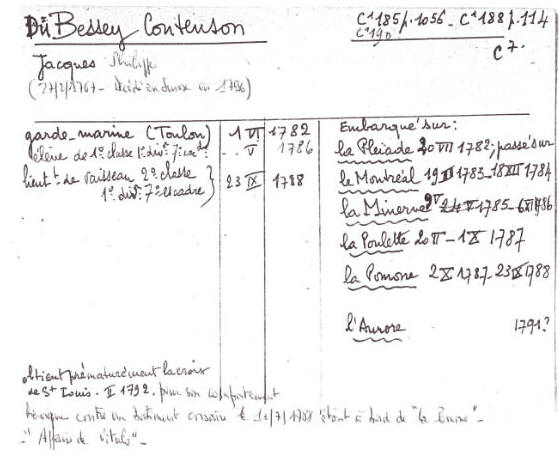 Du Bessey Contenson
C¹185 p.1056 - C¹188 p.114
C¹190
C⁷.
Jacques Philippe
(27/2/1767 - décédé en Suisse en 1796)
garde-marine (Toulon) 1 VI 1782
élève de 1e classe 1e divon 7e escdre .. V 1786
lieutt de vaisseau 2e classe 23 IX 1788
1e divon 7e escadre
Embarqué sur :
la Pleiade 20 VII 1782; passé sur
le Montréal 1783 - 18 XII 1784
la Minerve 1785 - 1786
la Poulette 20 II - 1 X 1787
la Pomone 2 X 1787 - 23 IX 1788
l'Aurore 1791?
obtient prématurément la croix
de St Louis. II 1792. pour son comportement
héroïque contre un bâtiment corsaire le 1788 étant à bord de "la
-"Affaire de Vitalis"-